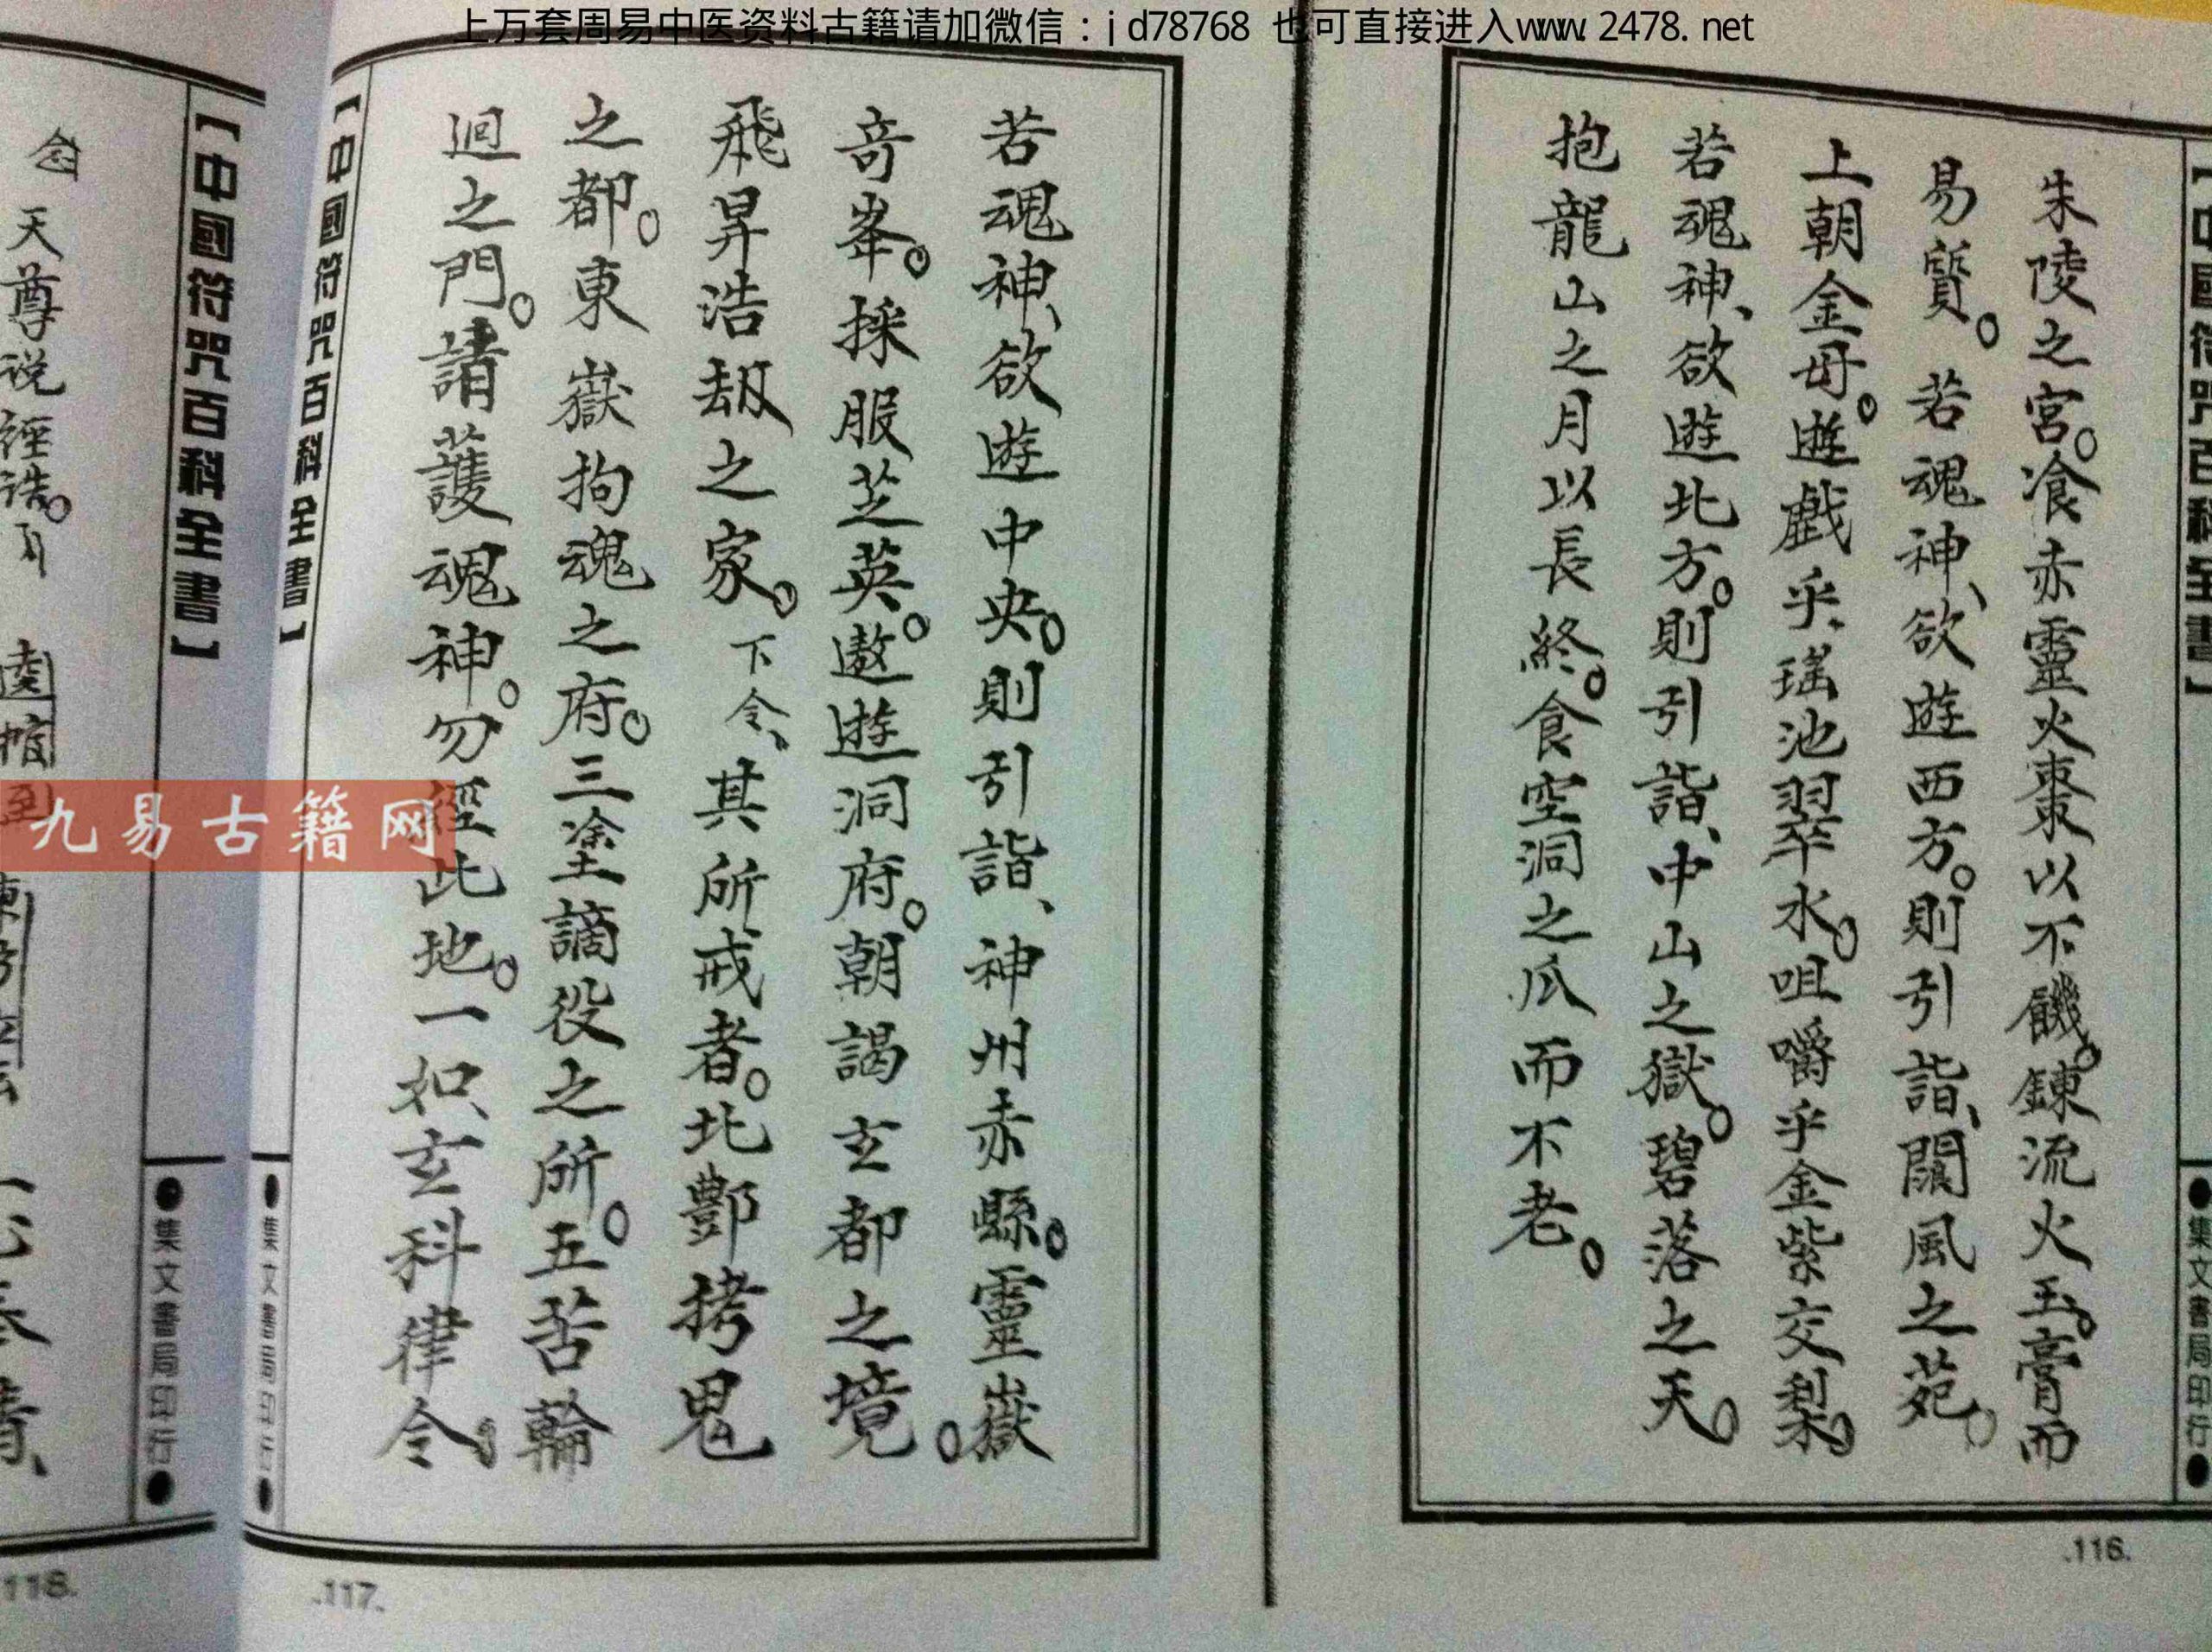 上万套周易中医资料古籍请加微信：jd78768 也可直接进入www.2478.net
【中國符咒百科全書】
●集文書局印行●
朱陵之宮。飡赤靈火棗以不饑。鍊流火玉。膏而
易質。若魂神、欲遊西方。則引詣、閬風之苑。
上朝金母。遊戲乎、瑤池翠水。咀嚼乎金紫交梨。
若魂神、欲遊北方。則引詣、中山之嶽。碧落之天。
抱龍山之月以長終。食空洞之瓜而不老。
.116.
若魂神、欲遊中央。則引詣、神州赤縣。靈嶽
奇峯。採服芝英。遨遊洞府。朝謁玄都之境。
飛昇浩刼之家。下令、其所戒者。北酆拷鬼
之都。東嶽拘魂之府。三塗謫役之所。五苦輪
迴之門。請護魂神。勿經此地。一如、玄科律令。
【中國符咒百科全書】
●集文書局印行●
.117.
【中國符咒百科全書】
●集文書局印行●
天尊说經誥。
118.
九易古籍网